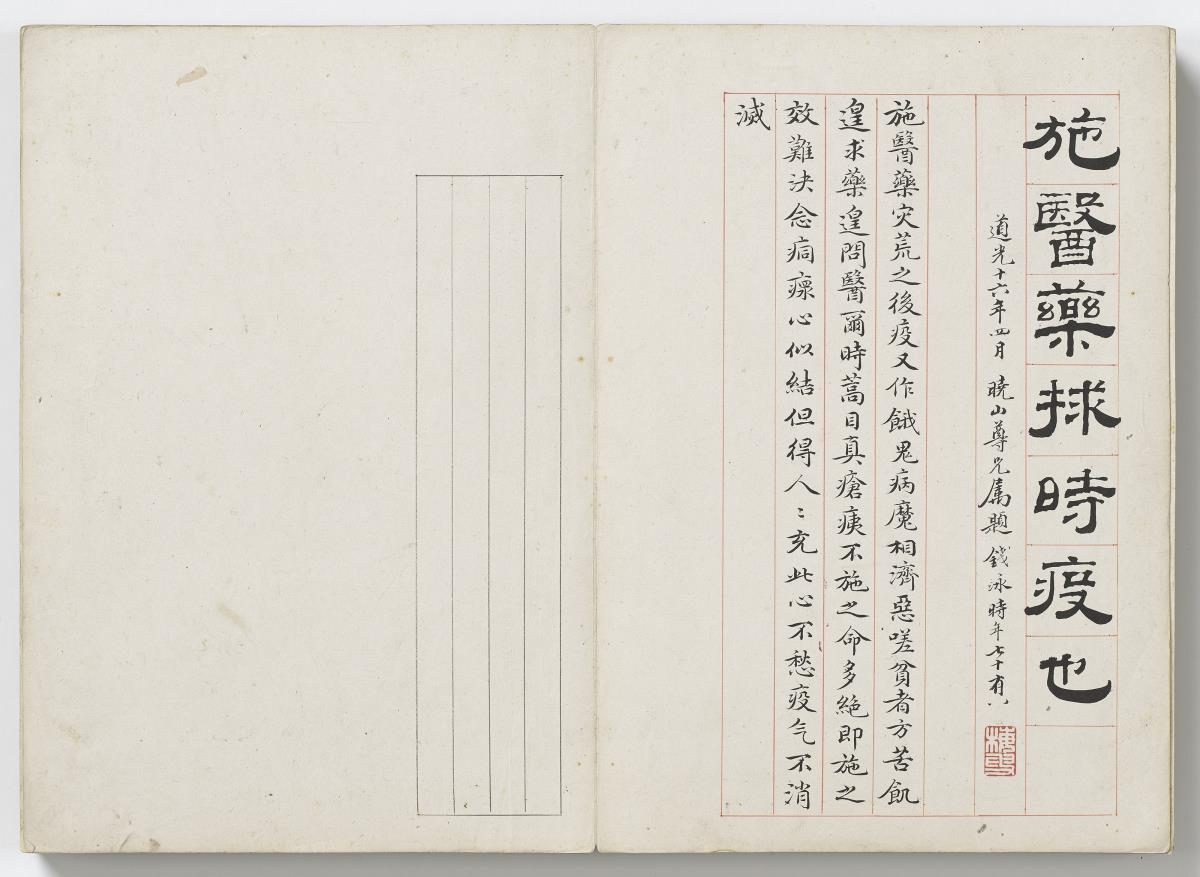 施醫藥捄時疫也
道光十六年四月 曉山尊兄屬題 錢泳時年七十有八
施醫藥灾荒之後疫又作餓鬼病魔相濟惡嗟貧者方苦飢
遑求藥遑問醫爾時蒿目真瘡痍不施之命多絕即施之
效難決念痌瘝心似結但得人〻充此心不愁疫气不消
滅